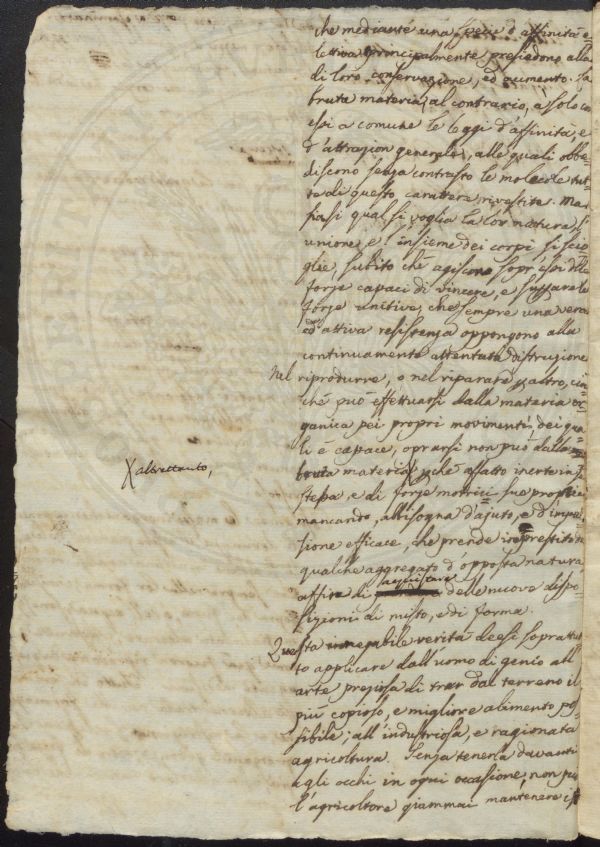 che mediante una specie d'affinità e-
lettiva principalmente presiedono alla
di loro conservazione, ed aumento. La
bruta materia, al contrario, a solo co
essi a comune le leggi d'affinità, e
d'attrazion generale, alle quali obbe-
discono senza contrasto le molecole tut-
te di questo carattere rivestite. Ma
siasi qual si voglia la lor natura, l'
unione e l'insieme dei corpi, si scio-
glie, subito che agiscono sopr'essi delle
forze capaci di vincere, e superare le
forze unitive, che sempre una vera
ed attiva resistenza oppongono alla
continuamente attentata distruzione
Nel riprodurre, o nel riparare p altro, ciò
che può effettuarsi dalla materia or-
ganica pei propri movimenti, dei qua-
li è capace, oprarsi non può dalla
bruta materia X, che affatto inerte in se
X altrettanto,
stessa, e di forze motrici sue proprie
mancando, abbisogna d'ajuto, e d'impul-
sione efficace, che prende in prestito da
qualche aggregato d'opposta natura
affine di acquistare delle nuove dispo-
sizioni di misto, e di forma.
Questa innegabile verità deesi soprattut-
to applicare dall'uomo di genio all'
arte preziosa di trar dal terreno il
più copioso, e migliore alimento pos-
sibile; all'industriosa, e ragionata
agricoltura. Senza tenerla davanti
agli occhi in ogni occasione, non può
l'agricoltore giammai mantenere i